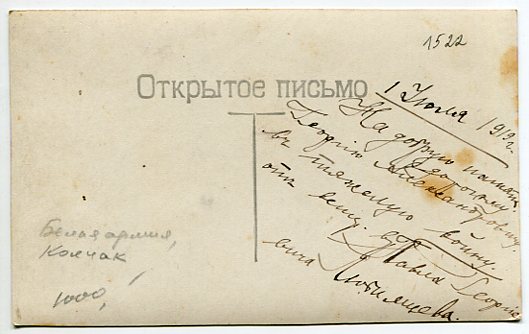 1522
Открытое письмо
1 Июля 1919 г.
На добрую память
Георгію Александровичу
въ тяжелую войну.
отъ Павла Георгіе
вича
Бѣлая армия,
Колчак
1000,